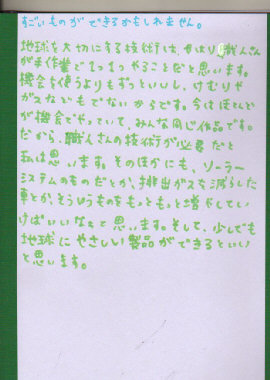 すごいものができるかもしれません。
地球を大切にする技術は、やはり職人さん
が手作業で1つ1つやることだと思います。
機会を使うよりもずっといいし、けむりや
ガスなどもでないからです。今はほとんど
が機会でやっていて、みんな同じ作品です。
だから、職人さんの技術が必要だと
私は思います。そのほかにも、ソーラー
システムのものだとか、排出ガスを減らした
車とか、そういうものをもっともっと増やしてい
けばいいなぁって思います。そして、少しでも
地球にやさしい製品ができるといい
と思います。